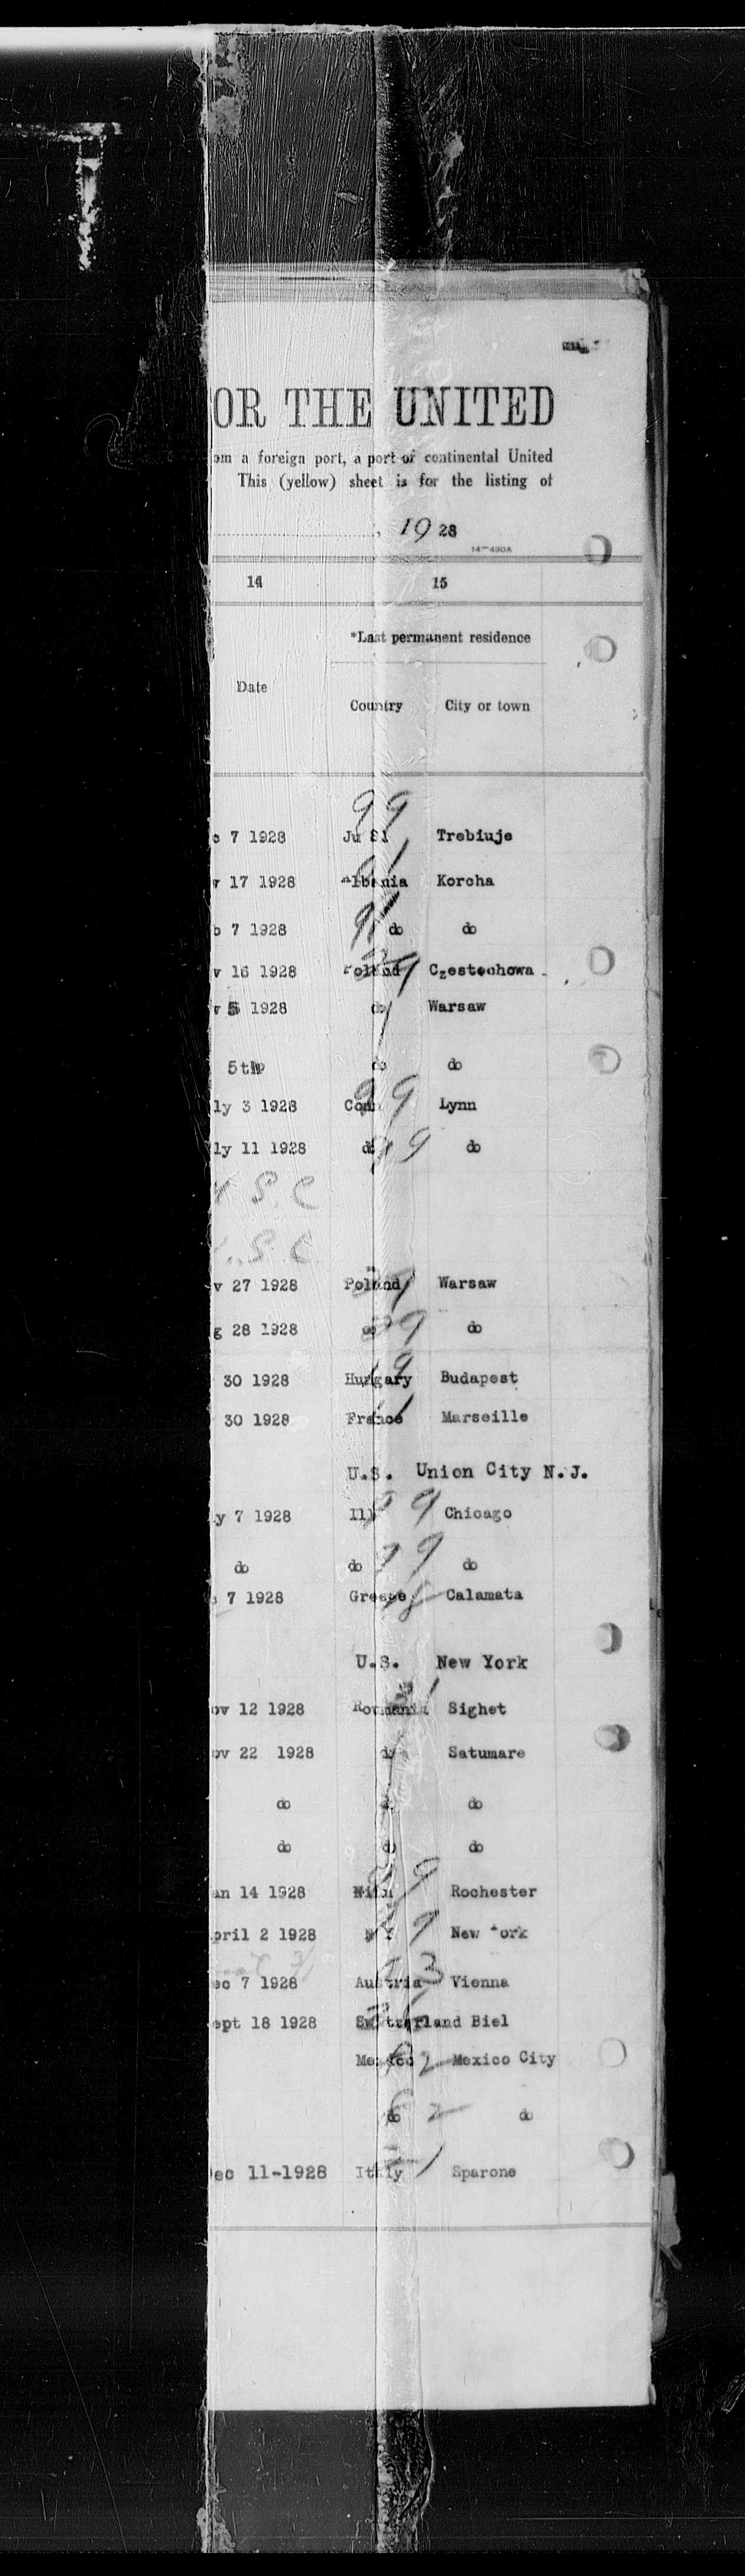 OR THE UNITED
om a foreign port, a port of continental United
This (yellow) sheet is for the listing of
, 1928
14—430A
14 15
*Last permanent residence
Date
Country City or town
99
c 7 1928 Trebiuje
r 17 1928 Albania Korcha
b 7 1928 do do
v 16 1928 Poland Czestochowa
r 5 1928 do Warsaw
5th do do
ly 3 1928 Conn 99 Lynn
ly 11 1928 do 99 do
S. C
. S. C
v 27 1928 Poland Warsaw
g 28 1928 do 99 do
30 1928 Hungary Budapest
30 1928 France Marseille
U.S. Union City N.J.
y 7 1928 Ill 99 Chicago
do do 99 do
7 1928 Greece Calamata
U.S. New York
ov 12 1928 Roumania Sighet
ov 22 1928 do Satumare
do do do
do do do
an 14 1928 9 Rochester
pril 2 1928 9 New York
ec 7 1928 Austria 3 Vienna
ept 18 1928 Switzerland Biel
Mexico 2 Mexico City
do 2 do
ec 11-1928 Italy Sparone